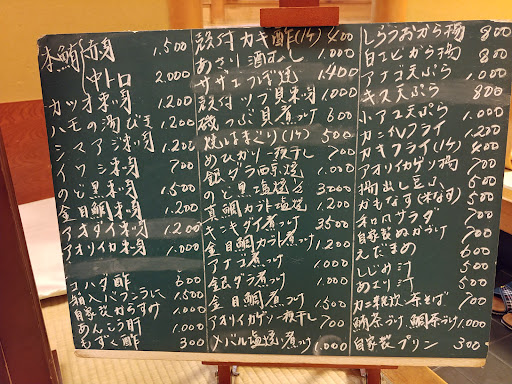 本鮪 赤身 1.500
中トロ 2.000
カツオ刺身 1.200
ハモの湯びき 1.200
シマアジ刺身 1.200
イワシ刺身 700
のど黒刺身 1.500
金目鯛刺身 1.200
アオダイ刺身 1.200
アオリイカ刺身 1.000
コハダ酢 600
1.500
自家製からすみ 1.000
あんこう肝 1.000
もずく酢 300
殻付カキ酢(1ケ) 400
あさり酒むし 1.000
サザエつぼ焼 1.000
殻付ツブ貝刺身 1.000
磯つぶ貝煮つけ 600
焼はまぐり(1ケ) 500
めひかり一夜干し 700
銀ダラ西京焼 1.000
のど黒塩焼 3000
真鯛カブト塩焼 1.200
キンキダイ煮つけ 3500
金目鯛カブト煮つけ 1.200
アナゴ煮つけ 1.000
銀ダラ煮つけ 1.000
金目鯛煮つけ 1.500
アオリイカゲソ一夜干し 700
メバル塩焼・煮つけ 1.000
しらうおから揚 800
白エビから揚 800
アナゴ天ぷら 1.000
キス天ぷら 800
小アユ天ぷら 1.000
カニ爪フライ 1.200
カキフライ(1ケ) 400
アオリイカゲソ揚 700
揚出し豆ふ 500
かもなす(米なす) 500
和風サラダ 700
自家製ぬかづけ 700
えだまめ 600
しじみ汁 500
あさり汁 500
茶そば 700
鮪茶づけ、鯛茶づけ 1.000
自家製プリン 300